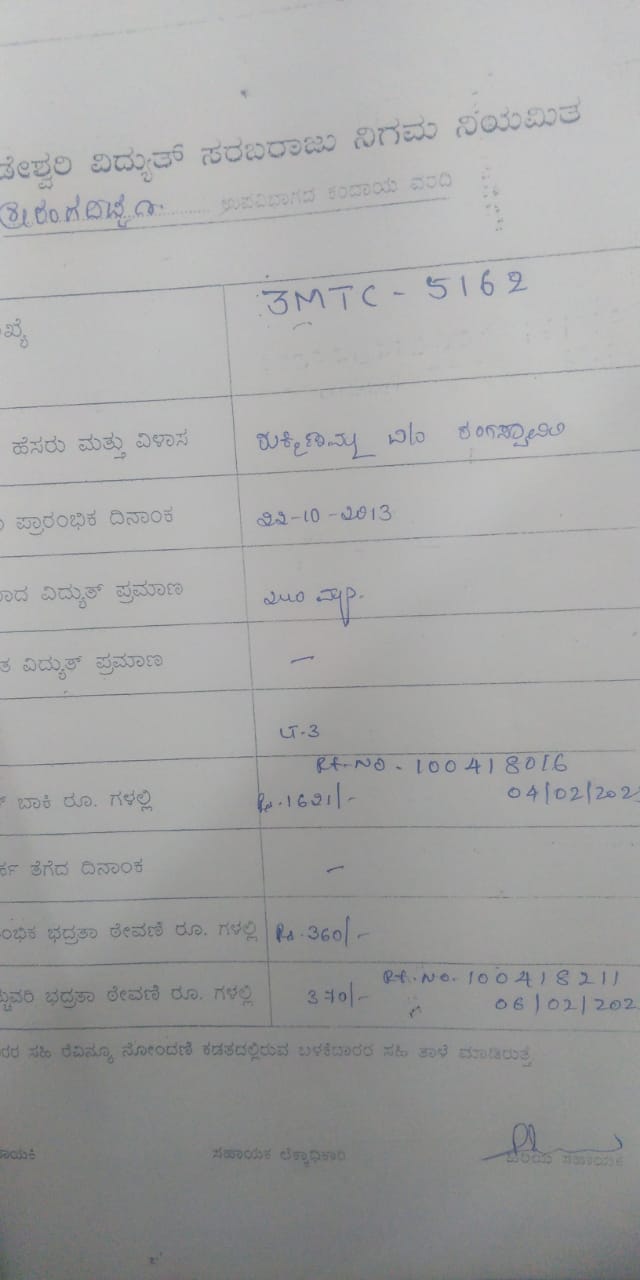 ಡೇಶ್ವರಿ ವಿದ್ಯುತ್ ಸರಬರಾಜು ನಿಗಮ ನಿಯಮಿತ
ಉಪವಿಭಾಗದ ಕಂದಾಯ ವರದಿ
ಖ್ಯೆ 3MTC - 5162
ಹೆಸರು ಮತ್ತು ವಿಳಾಸ ರುಕ್ಮಿಣಮ್ಮ ರಂಗಸ್ವಾಮಿ
ಪ್ರಾರಂಭಿಕ ದಿನಾಂಕ 22-10-2013
ವಿದ್ಯುತ್ ಪ್ರಮಾಣ
ತ ವಿದ್ಯುತ್ ಪ್ರಮಾಣ —
LT-3
Rt-No - 100418016
ಬಾಕಿ ರೂ. ಗಳಲ್ಲಿ Rs.1621/- 04/02/202
ತೆಗೆದ ದಿನಾಂಕ —
ಂಭಿಕ ಭದ್ರತಾ ಠೇವಣಿ ರೂ. ಗಳಲ್ಲಿ Rs.360/-
Rt.No.100418211
ಚ್ಚುವರಿ ಭದ್ರತಾ ಠೇವಣಿ ರೂ. ಗಳಲ್ಲಿ 370/- 06/02/202
ರರ ಸಹಿ ರೆವಿನ್ಯೂ ನೋಂದಣಿ ಕಡತದಲ್ಲಿರುವ ಬಳಕೆದಾರರ ಸಹಿ ತಾಳೆ ಮಾಡಿರುತ್ತೆ
ಾಯಕಿ ಸಹಾಯಕ ಲೆಕ್ಕಾಧಿಕಾರಿ ಹಿರಿಯ ಸಹಾಯಕ